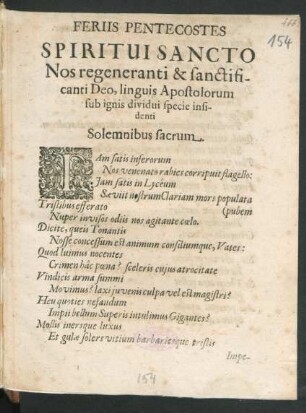 154
FERIIS PENTECOSTES
SPIRITUI SANCTO
Nos regeneranti & sanctifi-
canti Deo, linguis Apostolorum
sub ignis dividui specie insi-
denti
Solemnibus sacrum.
IAm satis inferorum
Nos venenato rabies corripuit flagello:
Jam satis in Lycêum
Sæviit nostrum Clariam mors populata
Tristibus efferato (pubem
Nuper invisos ediis nos agitante cœlo.
Dicite, queis Tonantis
Nosse concessum est animum consiliumque, Vates:
Quod luimus nocentes
Crimen hâc pœna? sceleris cujus atrocitate
Vindicis arma summi
Movimus? laxi juvenis culpa vel est magistri?
Heu quoties nefandum
Impii bellum Superis intulimus Gigantes?
Mollis inersque luxus
Et gulæ solers vitium barbariesque tristis
Impe-
154